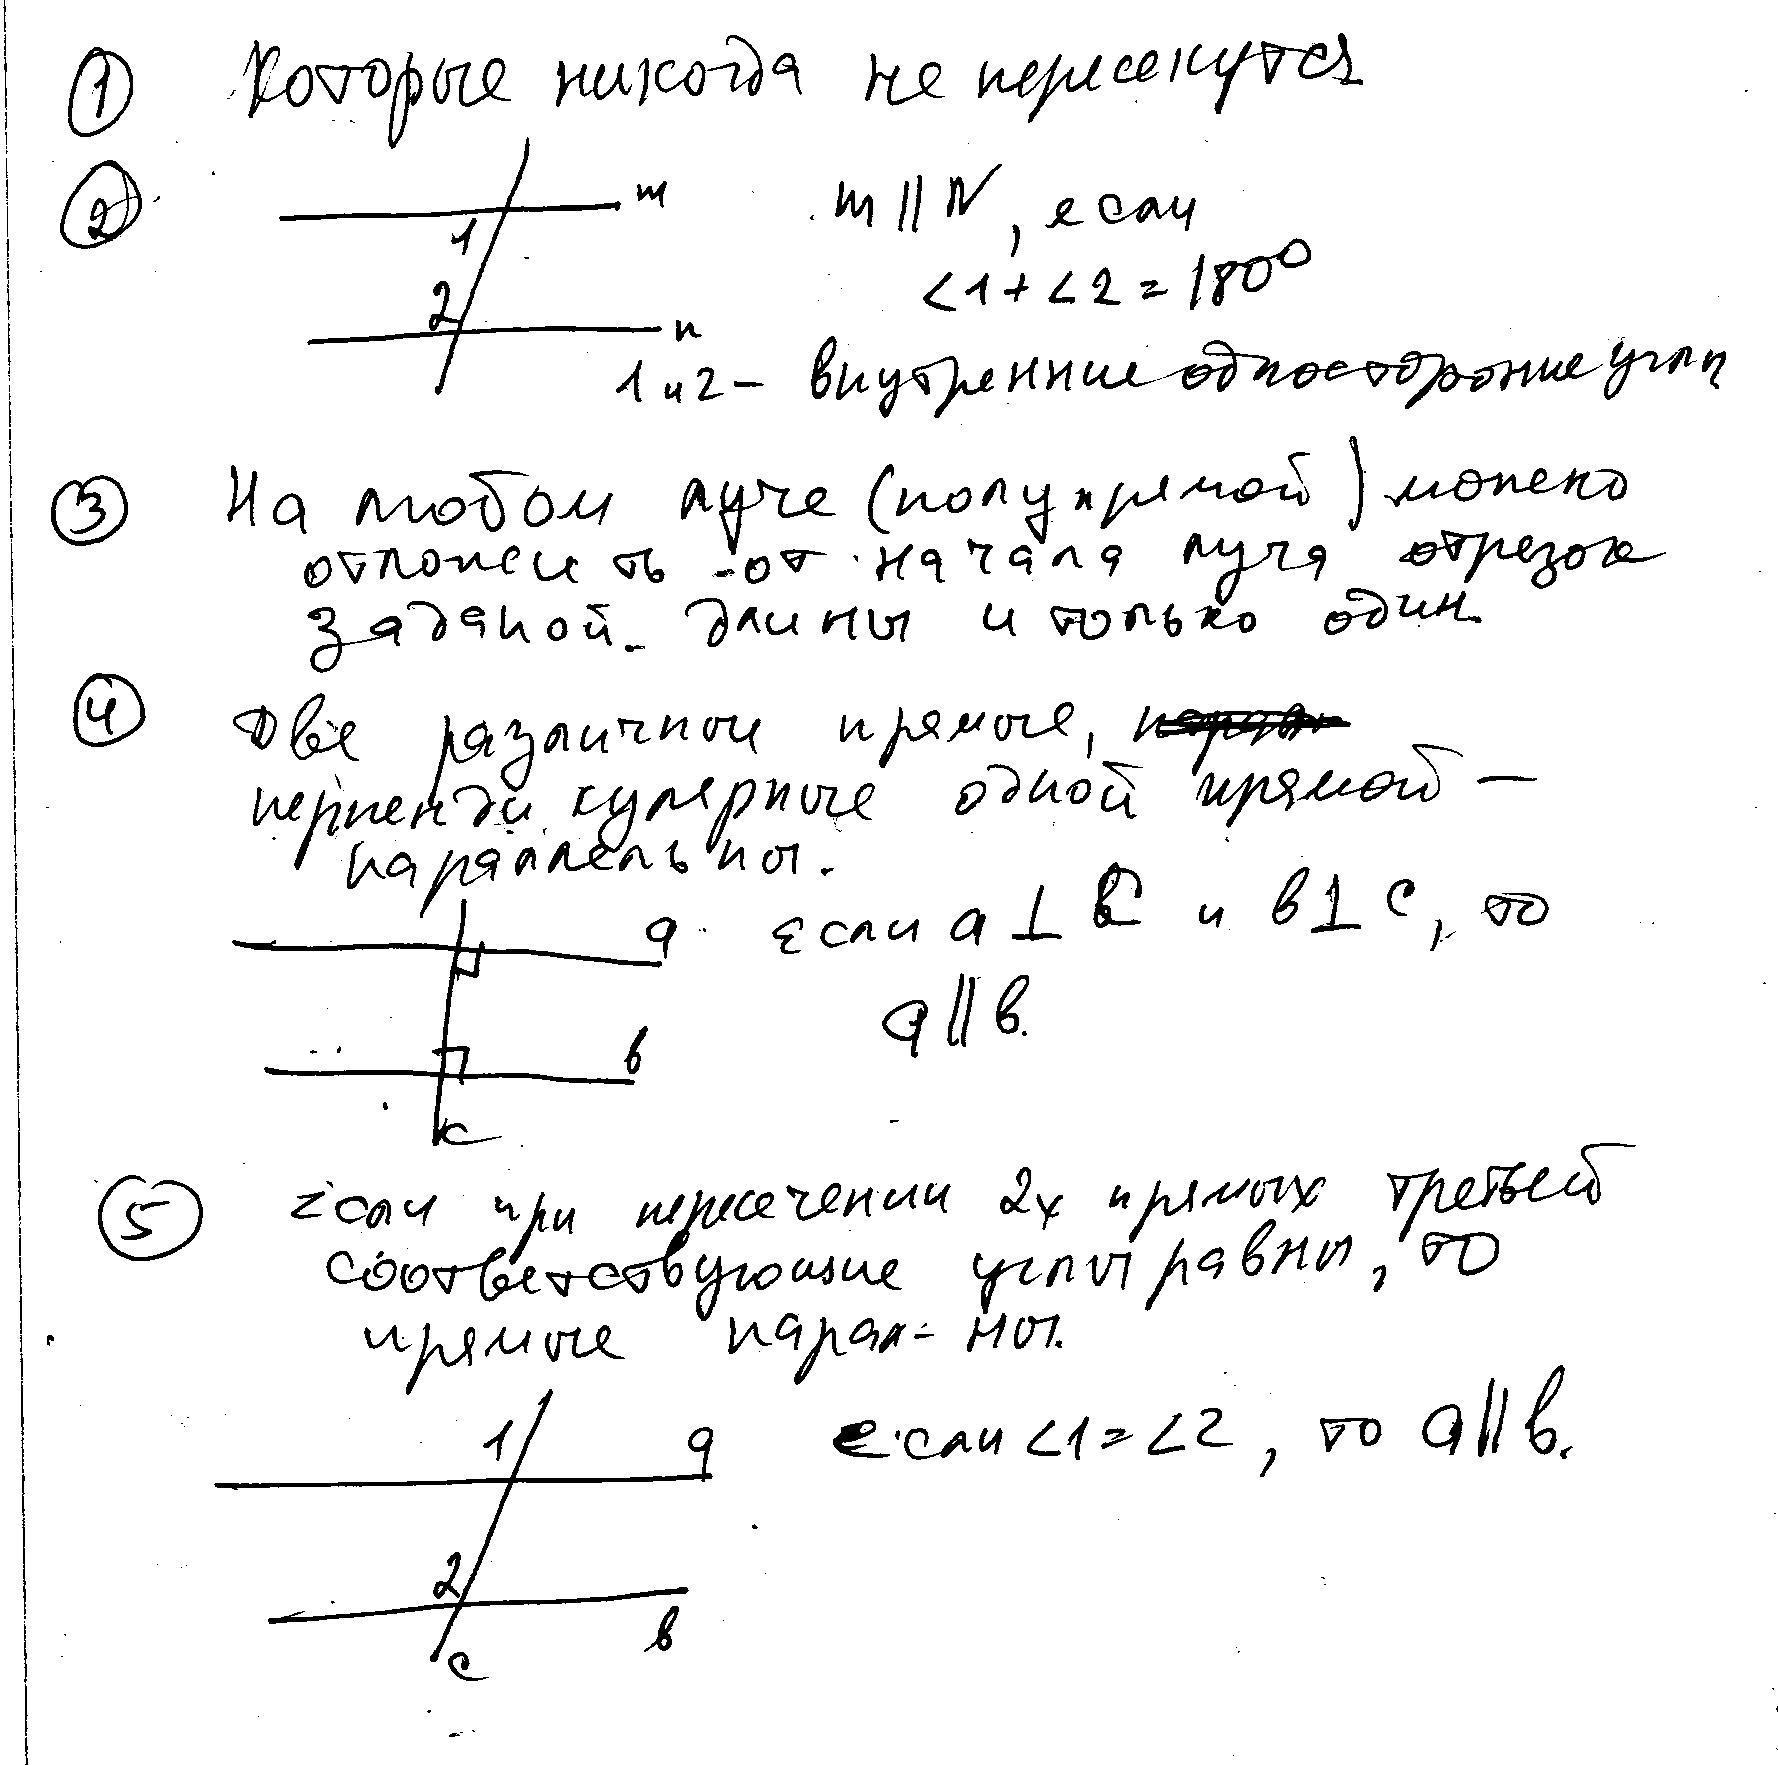 ① Которые никогда не пересекутся
② m
m || N, если
1
2
<1 + <2 = 180°
n
1 и 2 - внутренние одностороние углы
③ На любом луче (полупрямой) можно
отложить от начала луча отрезок
заданой длины и только один
④ Две различной прямые,
перпендикулярные одной прямой –
параллельны.
a если a ⊥ c и в ⊥ c, то
a || в.
в
c
⑤ Если при пересечении 2х прямых третьей
соответствующие углы равны, то
прямые парал-ны.
1 a если <1 = <2, то a || в.
2
в
c